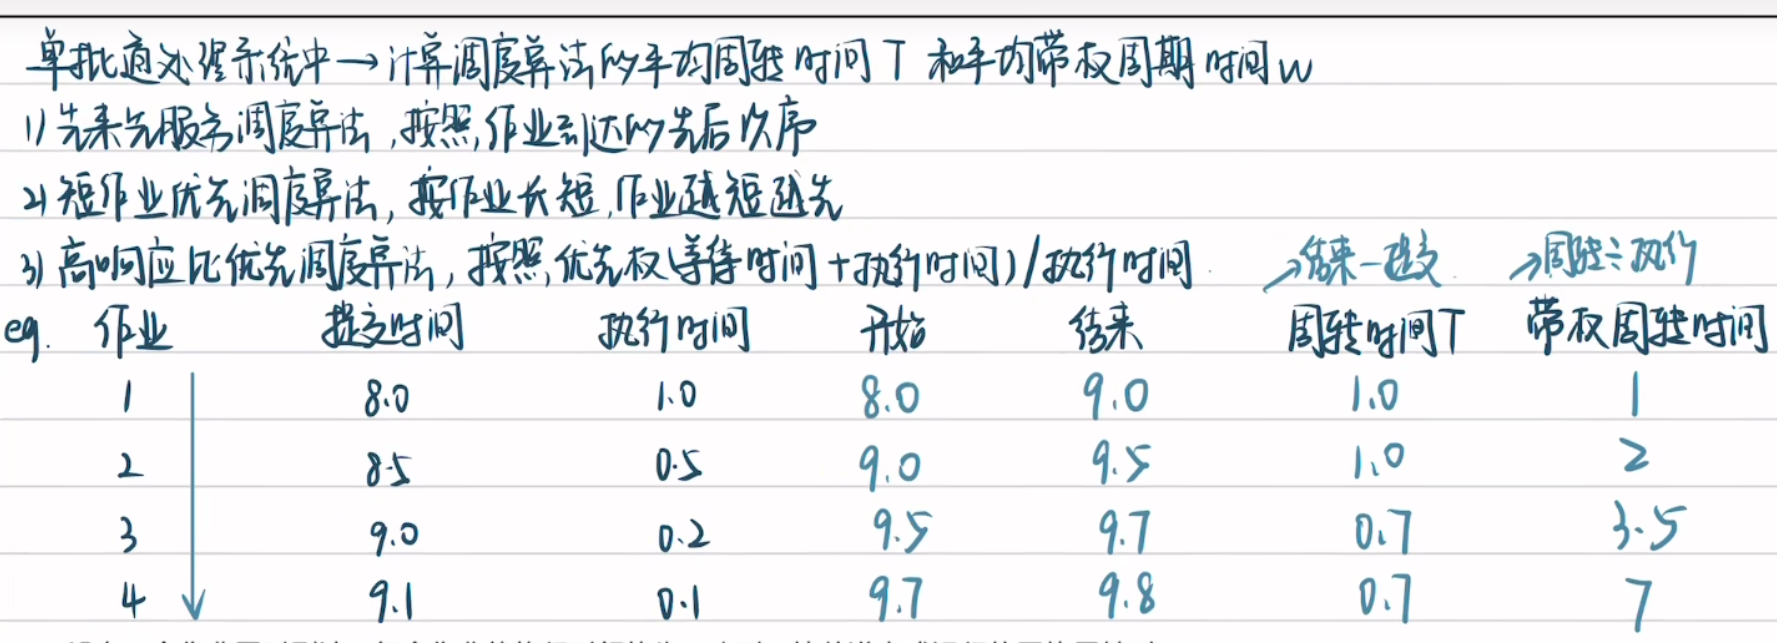 单批道处理系统中→计算调度算法的平均周转时间T 和平均带权周期时间W
1) 先来先服务调度算法,按照,作业到达的先后次序
2) 短作业优先调度算法,按作业长短,作业越短越先
3) 高响应比优先调度算法,按照,优先权(等待时间+执行时间)/执行时间 →结束-提交 →周转÷执行
eg. 作业 提交时间 执行时间 开始 结束 周转时间T 带权周转时间
1 8.0 1.0 8.0 9.0 1.0 1
2 8.5 0.5 9.0 9.5 1.0 2
3 9.0 0.2 9.5 9.7 0.7 3.5
4 9.1 0.1 9.7 9.8 0.7 7